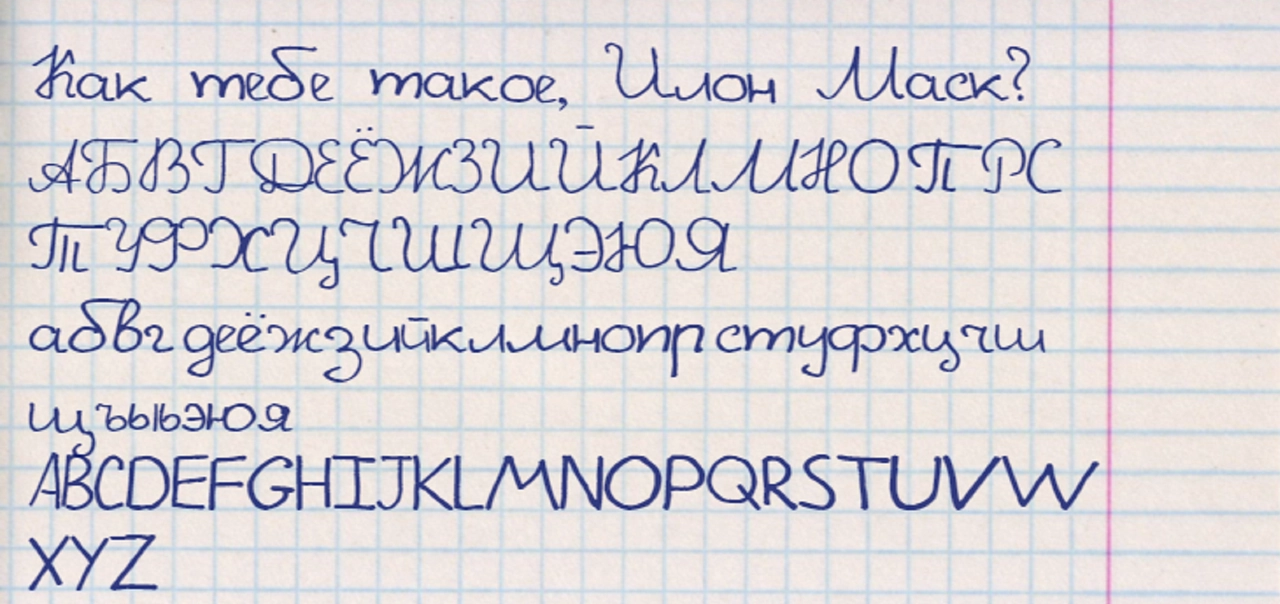 Как тебе такое, Илон Маск?
АБВГДЕЁЖЗИЙКЛМНОПРС
ТУФХЦЧШЩЭЮЯ
абвгдеёжзийклмнопрстуфхцчш
щъыьэюя
ABCDEFGHIJKLMNOPQRSTUVW
XYZ